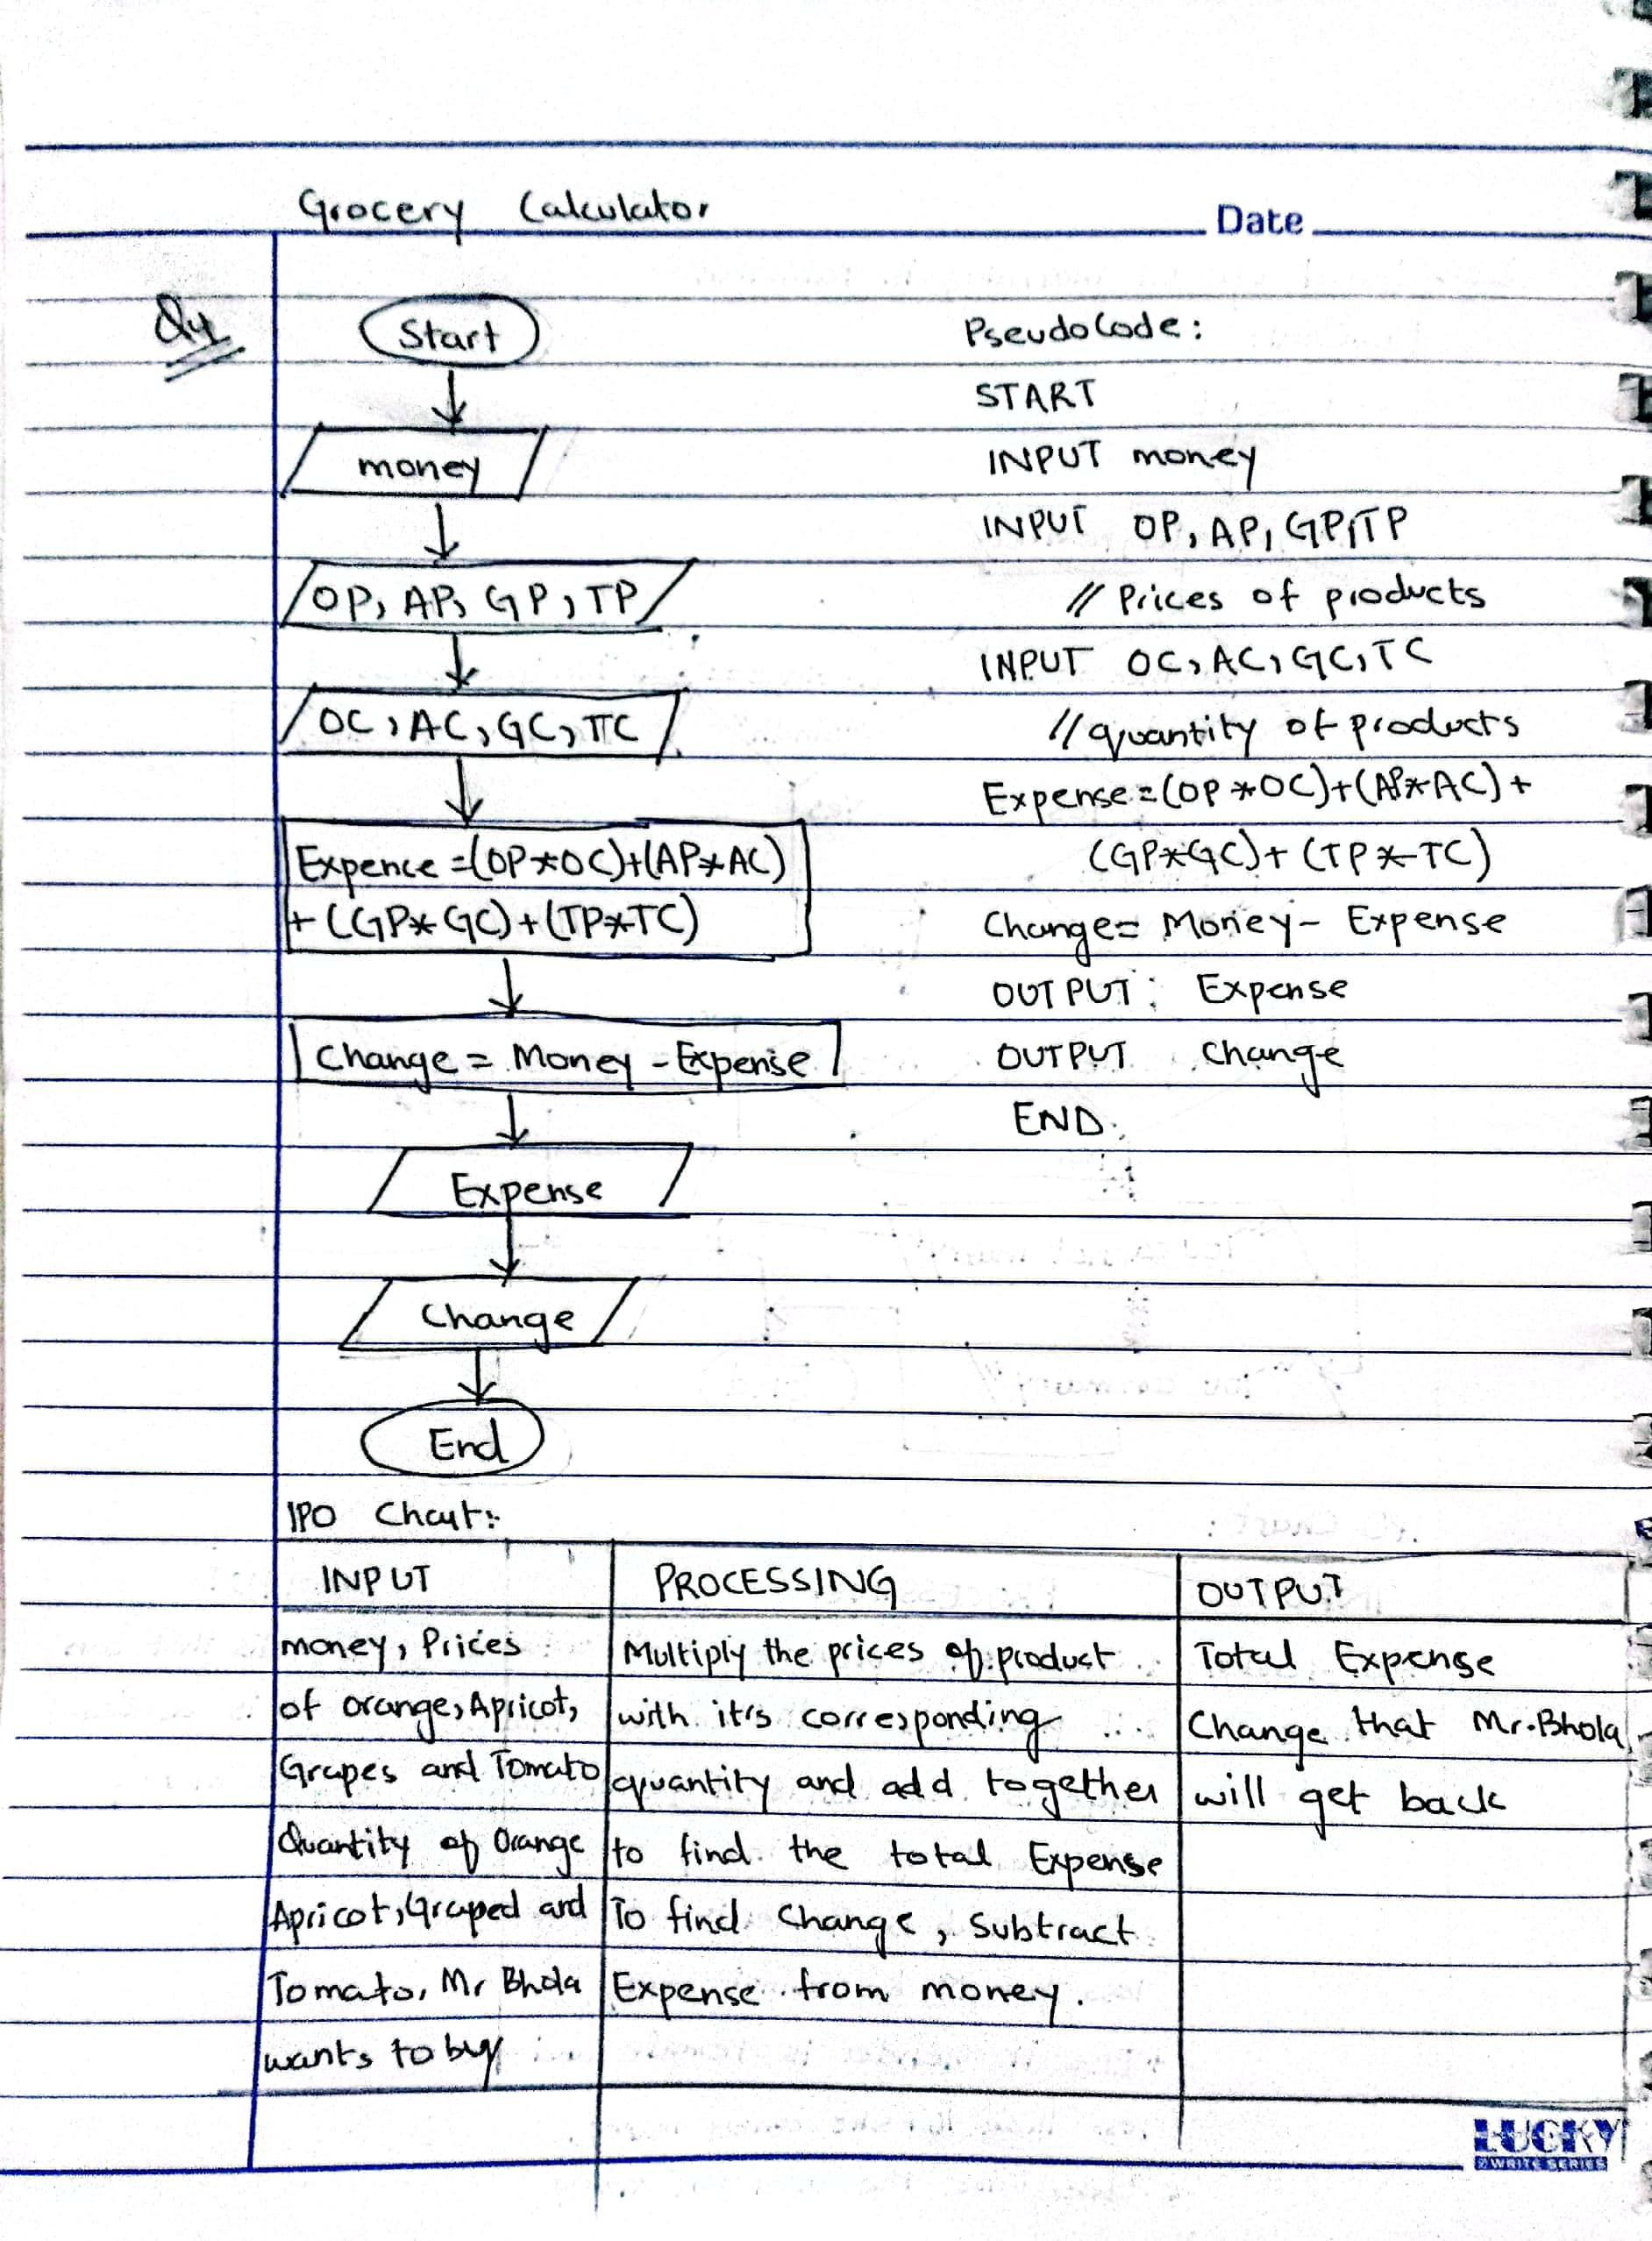 Grocery Calculator
Date
Q4
Start
money
OP, AP, GP, TP
OC, AC, GC, TC
Expence =(OP*OC)+(AP*AC)
+ (GP*GC)+(TP*TC)
Change = Money - Expense
Expense
Change
End
PseudoCode:
START
INPUT money
INPUT OP, AP, GP, TP
// Prices of products
INPUT OC, AC, GC, TC
// quantity of products
Expense=(OP*OC)+(AP*AC)+
(GP*GC)+(TP*TC)
Change= Money- Expense
OUTPUT: Expense
OUTPUT Change
END.
IPO Chart:
INPUT
money, Prices
of orange, Apricot,
Grapes and Tomato
Quantity of Orange
Apricot, Graped and
Tomato, Mr Bhola
wants to buy
PROCESSING
Multiply the prices of product
with it's corresponding
quantity and add together
to find the total Expense
To find Change, Subtract
Expense from money.
OUTPUT
Total Expense
Change that Mr. Bhola
will get back
LUCKY
WRITE SERIES